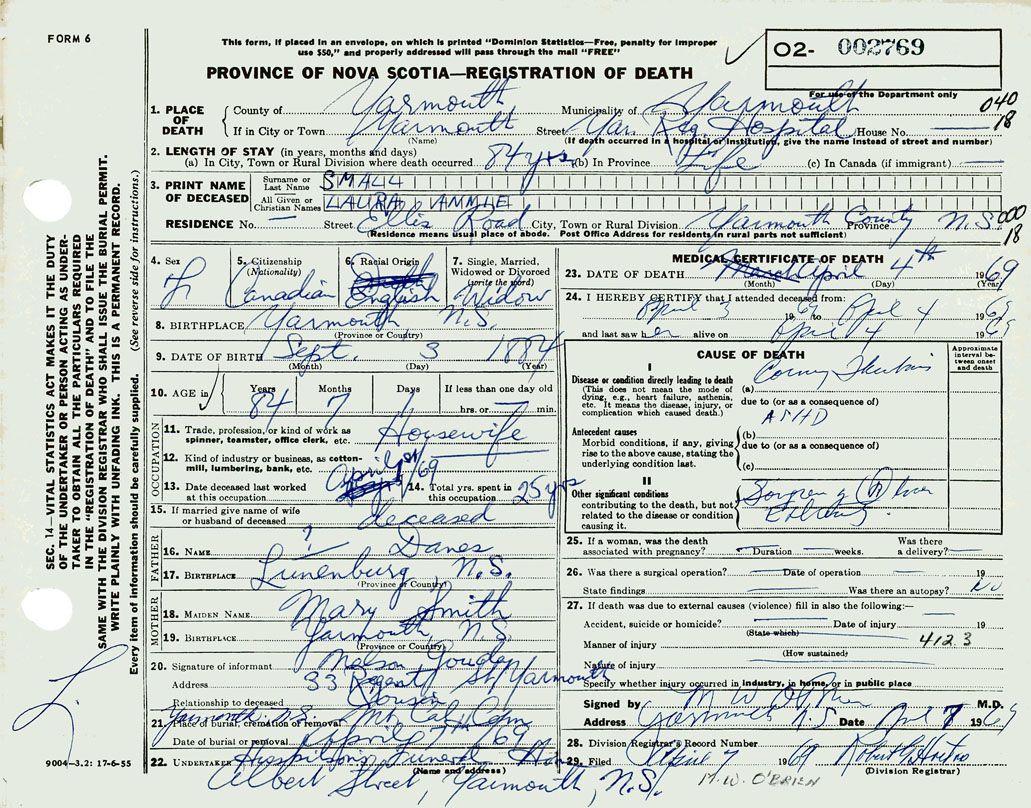 FORM 6
This form, if placed in an envelope, on which is printed "Dominion Statistics—Free, penalty for improper
use $50," and properly addressed will pass through the mail "FREE"
O2- 002769
PROVINCE OF NOVA SCOTIA—REGISTRATION OF DEATH
For use of the Department only
1. PLACE OF DEATH
County of Yarmouth Municipality of Yarmouth 040
If in City or Town Yarmouth Street Yar. Reg. Hospital House No. 18
(Name) (If death occurred in a hospital or institution, give the name instead of street and number)
2. LENGTH OF STAY (in years, months and days)
(a) In City, Town or Rural Division where death occurred 84 yrs (b) In Province Life (c) In Canada (if immigrant)
3. PRINT NAME OF DECEASED
Surname or Last Name SMALL
All Given or Christian Names LAURA ANNIE
RESIDENCE No. Street Ellis Road City, Town or Rural Division Yarmouth County Province N.S. 000
(Residence means usual place of abode. Post Office Address for residents in rural parts not sufficient) 18
4. Sex F
5. Citizenship (Nationality) Canadian
6. Racial Origin English
7. Single, Married, Widowed or Divorced (write the word) Widow
8. BIRTHPLACE Yarmouth N.S.
(Province or Country)
9. DATE OF BIRTH Sept. 3 1884
(Month) (Day) (Year)
10. AGE in Years 84 Months 7 Days 1 If less than one day old hrs. or min.
OCCUPATION
11. Trade, profession, or kind of work as spinner, teamster, office clerk, etc. Housewife
12. Kind of industry or business, as cotton-mill, lumbering, bank, etc.
13. Date deceased last worked at this occupation April 1st/69
14. Total yrs. spent in this occupation 25 yrs
15. If married give name of wife or husband of deceased deceased
FATHER
16. NAME ? Danes
17. BIRTHPLACE Lunenburg, N.S.
(Province or Country)
MOTHER
18. MAIDEN NAME Mary Smith
19. BIRTHPLACE Yarmouth, N.S.
(Province or Country)
20. Signature of informant Nelson
Address 33 Regent St, Yarmouth
Relationship to deceased Cousin
21. Place of burial, cremation or removal Yarmouth N.S. Mt. Cem
Date of burial or removal April 7th/69
22. UNDERTAKER Funeral Home
(Name and address)
Albert Street, Yarmouth, N.S.
MEDICAL CERTIFICATE OF DEATH
23. DATE OF DEATH March April 4th 1969
(Month) (Day) (Year)
24. I HEREBY CERTIFY that I attended deceased from:
April 3 1969 to April 4 1969
and last saw her alive on April 4 1969
CAUSE OF DEATH
Approximate interval between onset and death
I
Disease or condition directly leading to death
(This does not mean the mode of dying, e.g., heart failure, asthenia, etc. It means the disease, injury, or complication which caused death.)
(a)
due to (or as a consequence of)
ASHD
Antecedent causes
Morbid conditions, if any, giving rise to the above cause, stating the underlying condition last.
(b)
due to (or as a consequence of)
(c)
II
Other significant conditions
contributing to the death, but not related to the disease or condition causing it.
25. If a woman, was the death associated with pregnancy? Duration weeks. Was there a delivery?
26. Was there a surgical operation? Date of operation 19
State findings Was there an autopsy? No
27. If death was due to external causes (violence) fill in also the following:
Accident, suicide or homicide? Date of injury 19
(State which)
Manner of injury 412.3
(How sustained)
Nature of injury
Specify whether injury occurred in industry, in home, or in public place
Signed by M W O'Brien M.D.
Address Yarmouth N.S Date Apl 7 1969
28. Division Registrar's Record Number
29. Filed April 7 1969
(Division Registrar)
M.W. O'BRIEN
SEC. 14—VITAL STATISTICS ACT MAKES IT THE DUTY
OF THE UNDERTAKER OR PERSON ACTING AS UNDER-
TAKER TO OBTAIN ALL THE PARTICULARS REQUIRED
IN THE "REGISTRATION OF DEATH" AND TO FILE THE
SAME WITH THE DIVISION REGISTRAR WHO SHALL ISSUE THE BURIAL PERMIT.
WRITE PLAINLY WITH UNFADING INK. THIS IS A PERMANENT RECORD.
Every item of information should be carefully supplied. (See reverse side for instructions.)
9004—3.2: 17-6-55